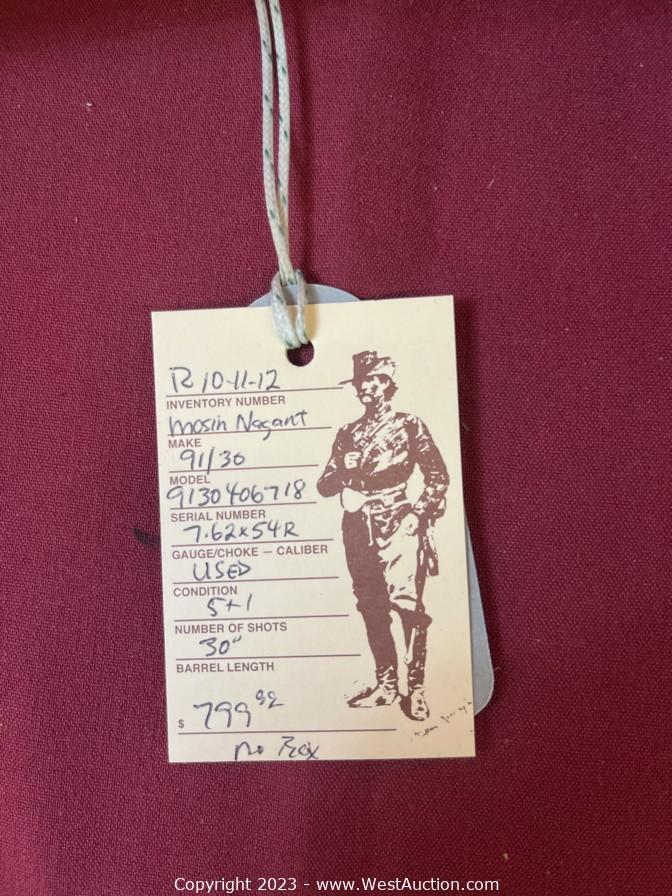 R 10-11-12
INVENTORY NUMBER
Mosin Nagant
MAKE
91/30
MODEL
9130406718
SERIAL NUMBER
7.62x54R
GAUGE/CHOKE — CALIBER
USED
CONDITION
5+1
NUMBER OF SHOTS
30"
BARREL LENGTH
$ 799 99
no Box
Copyright 2023 - www.WestAuction.com